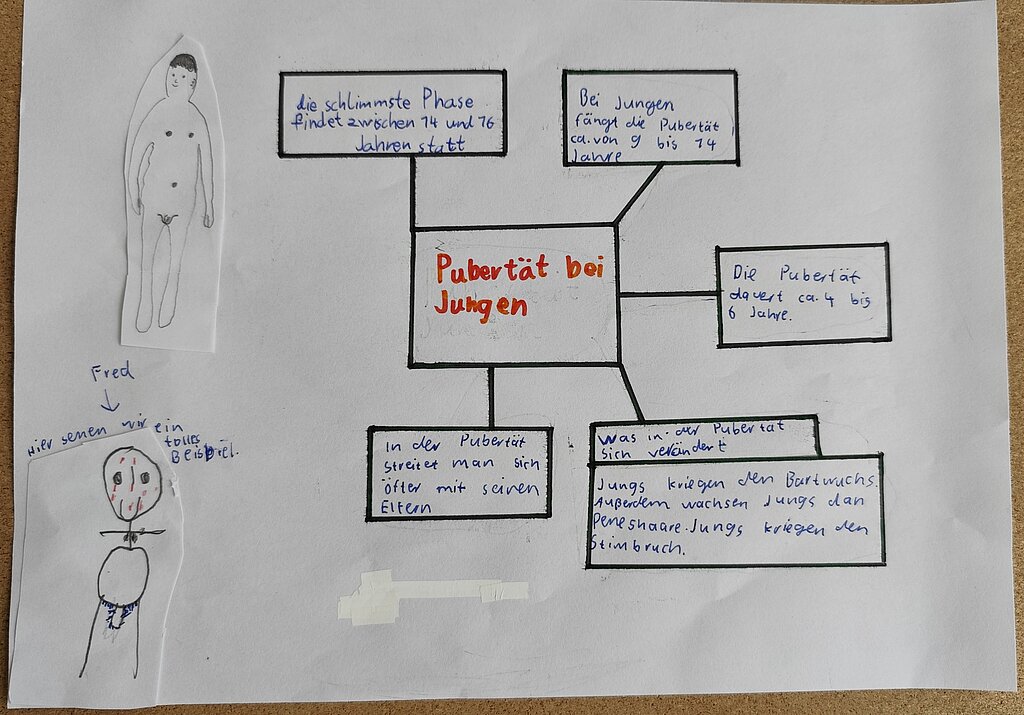 die schlimmste Phase
findet zwischen 14 und 16
Jahren statt
Bei Jungen
fängt die Pubertät
ca. von 9 bis 14
Jahre
Pubertät bei
Jungen
Die Pubertät
dauert ca. 4 bis
6 Jahre.
In der Pubertät
streitet man sich
öfter mit seinen
Eltern
Was in der Pubertät
sich verändert
Jungs kriegen den Bartwuchs.
Außerdem wachsen Jungs dan
Peneshaare. Jungs kriegen den
Stimbruch.
Fred
Hier sehen wir ein
tolles
Beispiel.